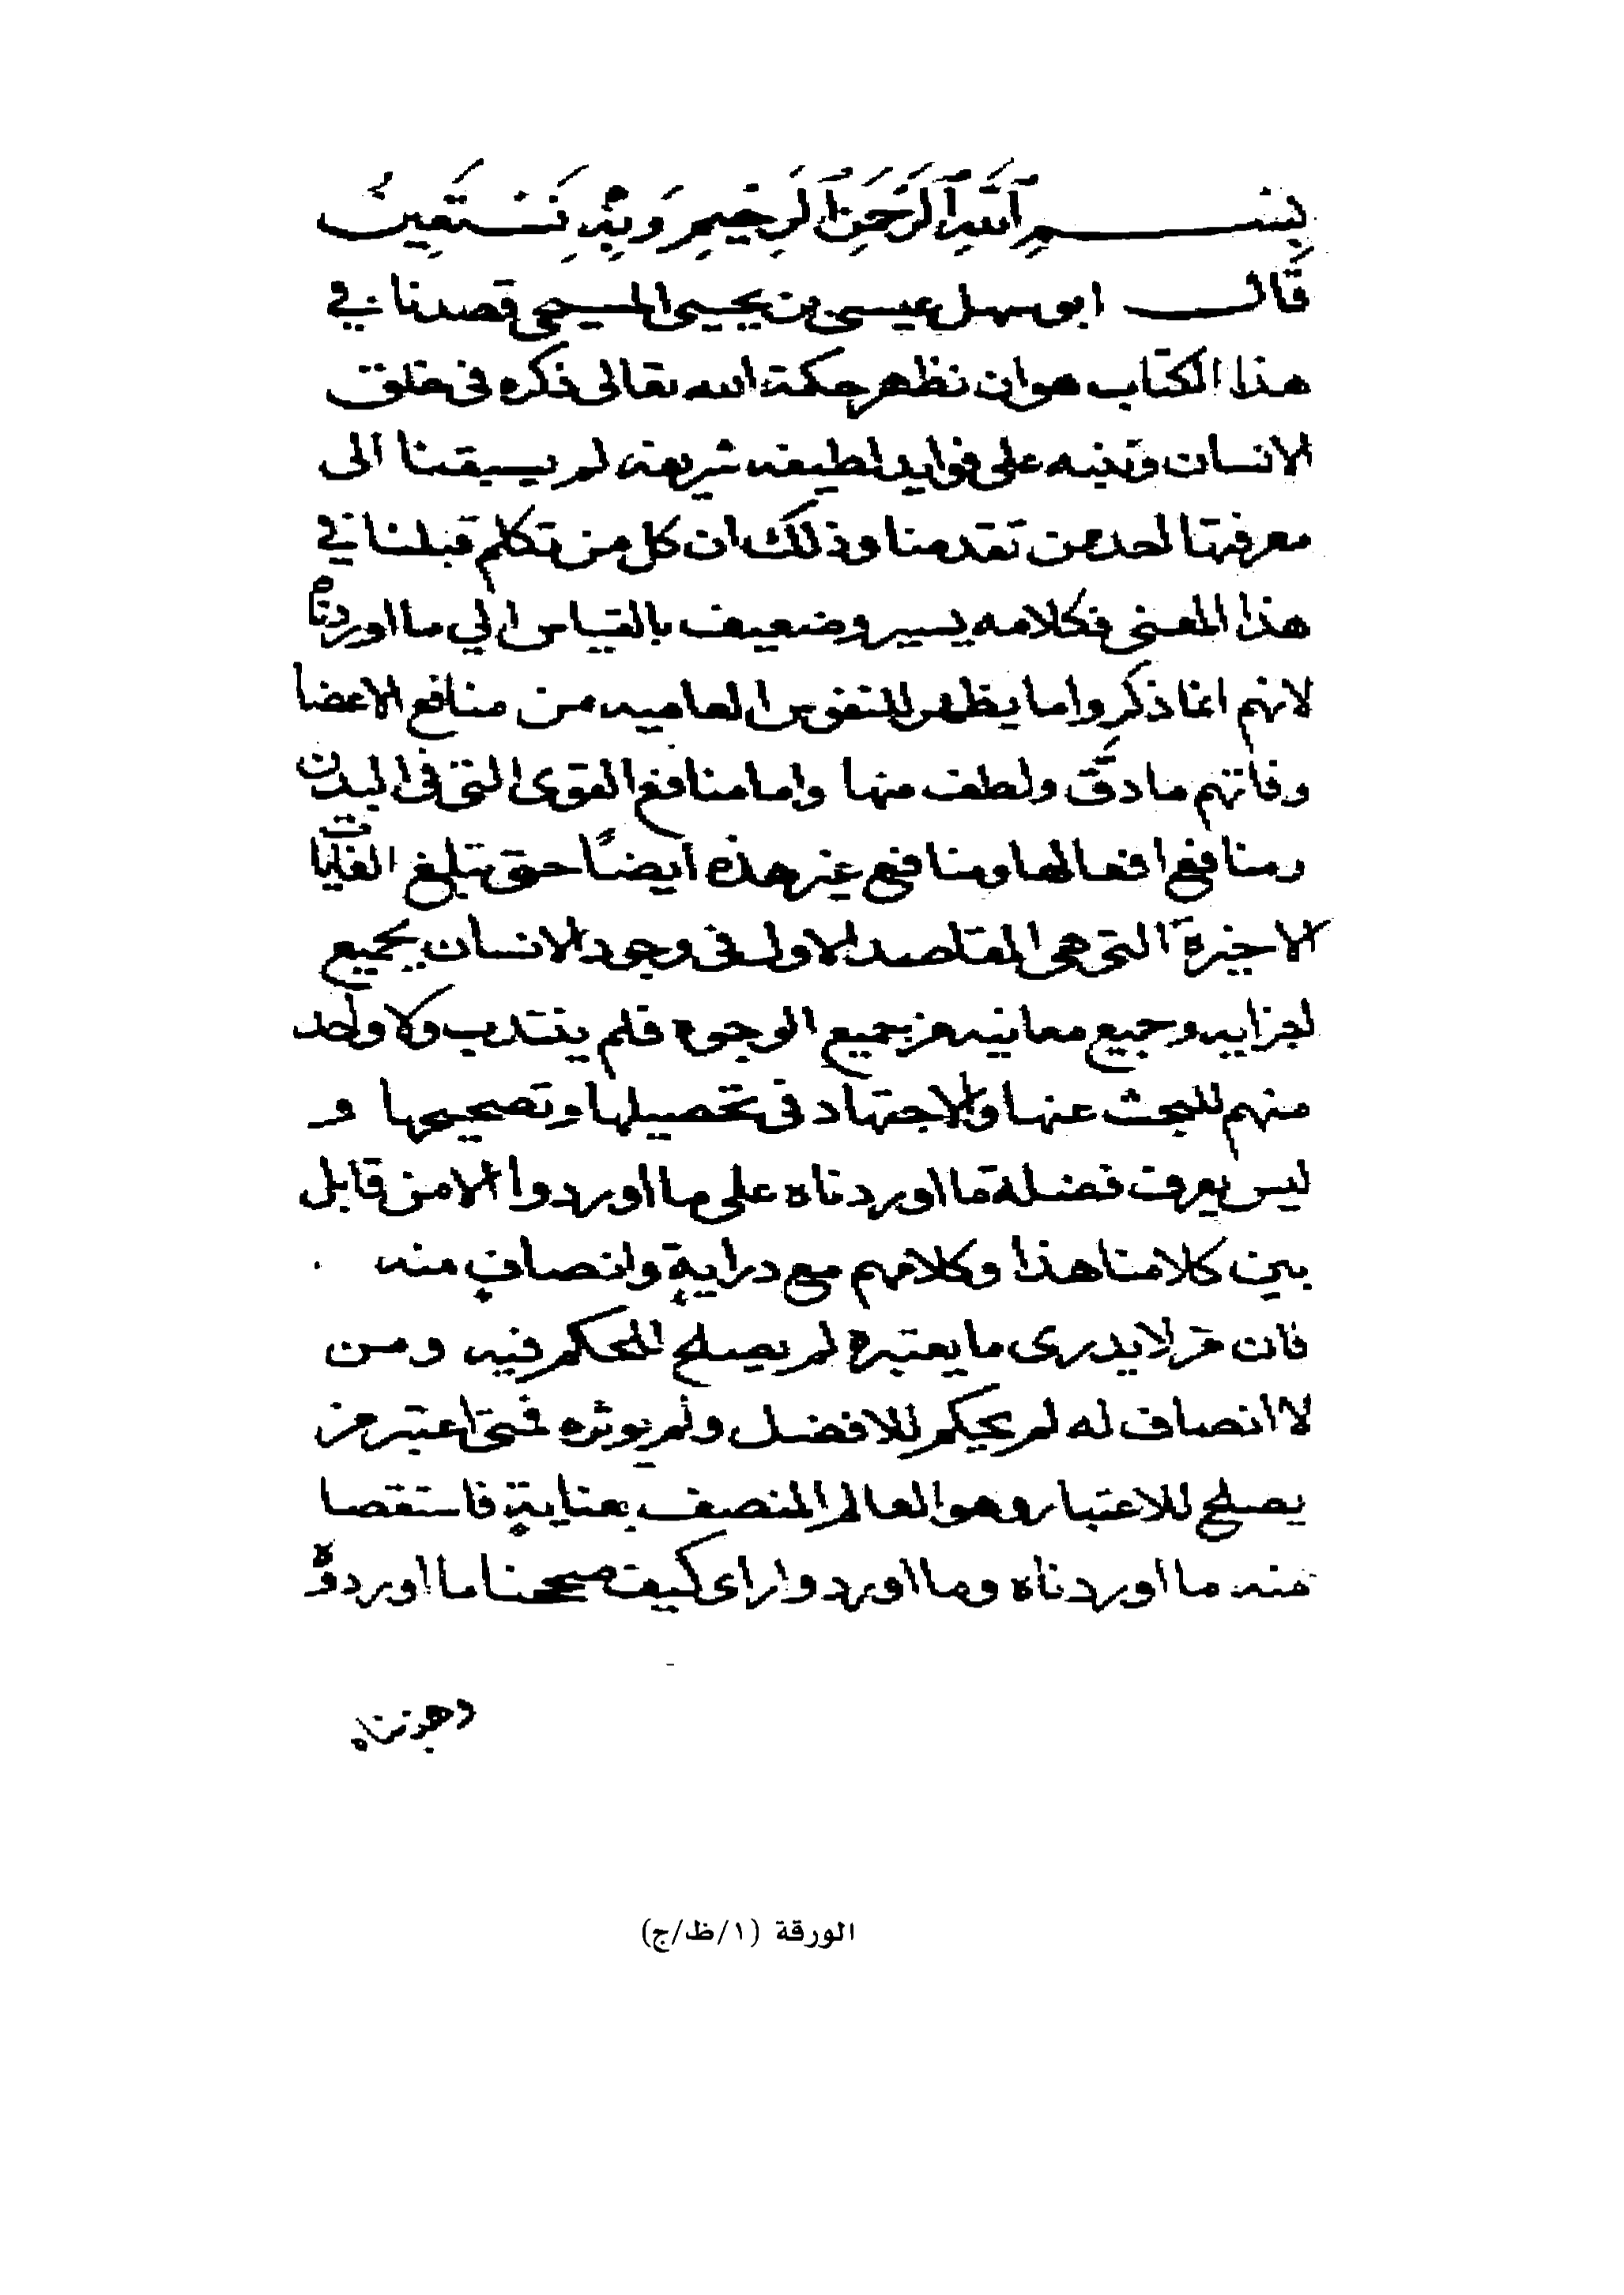 بِسْمِ ٱللَّهِ ٱلرَّحْمَنِ ٱلرَحِيمِ وَبِهِ نَسْتَعِينُ
قَال ابو سهل عيسى بن يحيى المسيحى قصدنا في
هذا الكتاب هو ان نظهر حكمة الله تعالى ذكره فى خلق
الانسان وننبه على فوايد لطيفه شريفه لم يسبقنا الى
معرفتها احد ممن تقدمنا وذلك ان كل من تكلم قبلنا في
هذا المعنى فكلامه يسير وضعيف بالقياس الي ما اوردناه
لانهم انما ذكروا ما يظهر للنفوس العاميه من منافع الاعضا
وفاتهم ما دقَّ ولطف منها واما منافع القوى التى فى البدن
ومنافع افعالها ومنافع غير هذه أيضاً حتى تبلغ الغايات
الاخيرة التى هى المقاصد الاول فى وجود الانسان بجميع
اجزايه وجميع معانيه من جميع الوجوه فلم ينتدب ولا واحد
منهم للبحث عنها والاجتهاد فى تحصيلها وتصحيحها و
ليس يعرف فضلة ما اوردناه على ما اوردوا الا من قابل
بين كلامنا هذا وكلامهم مع درايةٍ وانصافٍ منه
فان من لا يدرى ما يعتبره لم يصلح للحكم فيه ومن
لا انصاف له لم يحكم للافضل ولم يوثره فمتى اعتبر من
يصلح للاعتبار وهو العالم المنصف بعنايةٍ فاستقصا
منه ما اوردناه وما اوردوا راى كيف صححنا ما اوردوه
الورقة (١/ظ/ج)